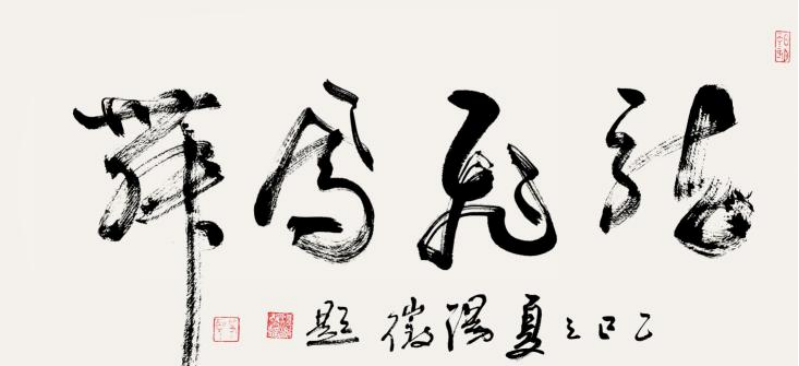 龍飛鳳舞
乙巳之夏陽徵題